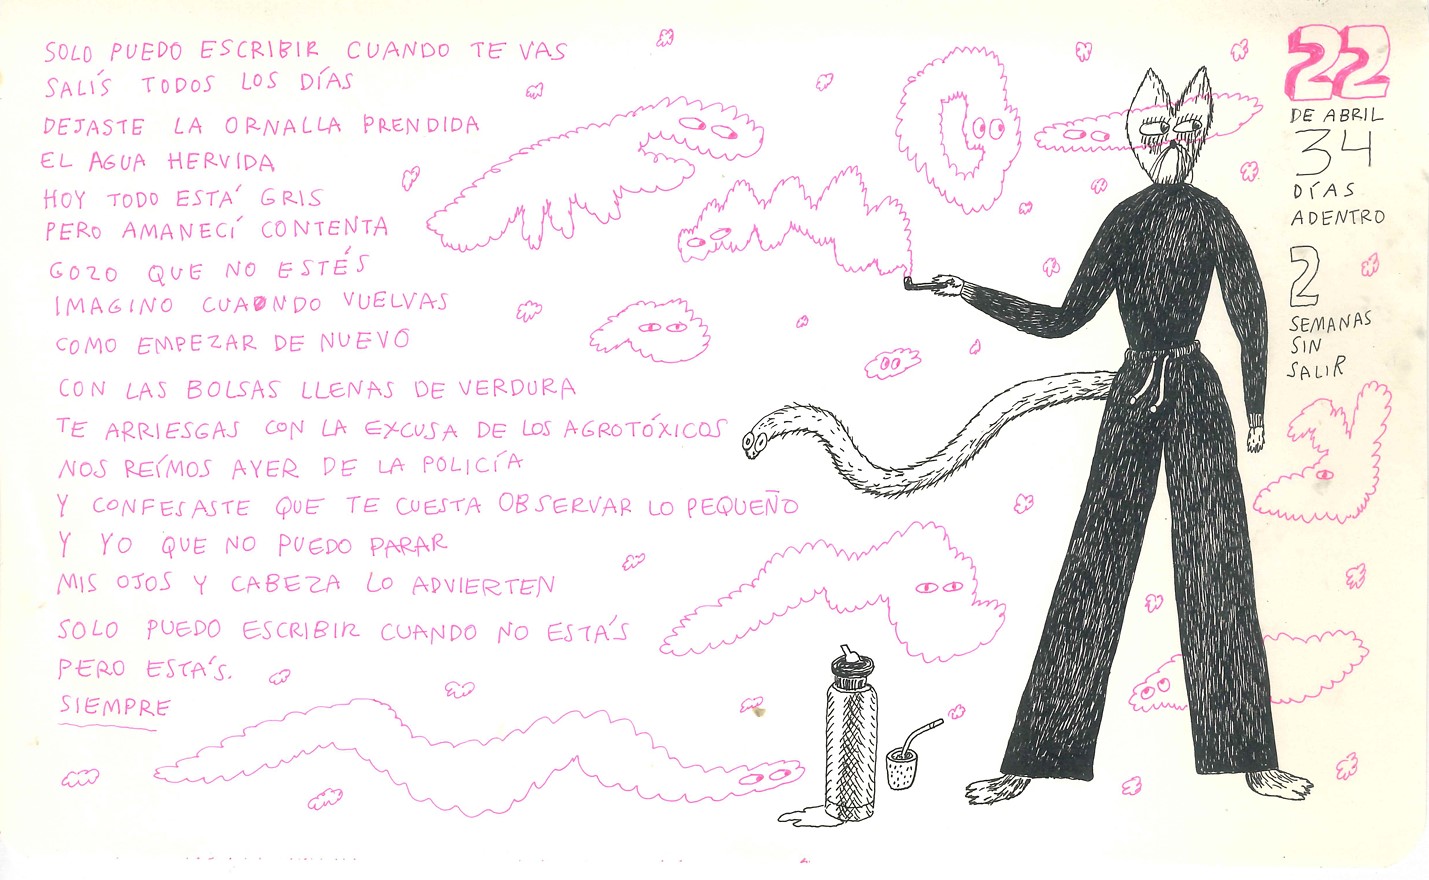 SOLO PUEDO ESCRIBIR CUANDO TE VAS
SALÍS TODOS LOS DÍAS
DEJASTE LA ORNALLA PRENDIDA
EL AGUA HERVIDA
HOY TODO ESTÁ GRIS
PERO AMANECÍ CONTENTA
GOZO QUE NO ESTÉS
IMAGINO CUANDO VUELVAS
COMO EMPEZAR DE NUEVO
CON LAS BOLSAS LLENAS DE VERDURA
TE ARRIESGAS CON LA EXCUSA DE LOS AGROTÓXICOS
NOS REÍMOS AYER DE LA POLICÍA
Y CONFESASTE QUE TE CUESTA OBSERVAR LO PEQUEÑO
Y YO QUE NO PUEDO PARAR
MIS OJOS Y CABEZA LO ADVIERTEN
SOLO PUEDO ESCRIBIR CUANDO NO ESTÁS
PERO ESTÁS.
SIEMPRE
22
DE ABRIL
34
DÍAS
ADENTRO
2
SEMANAS
SIN
SALIR